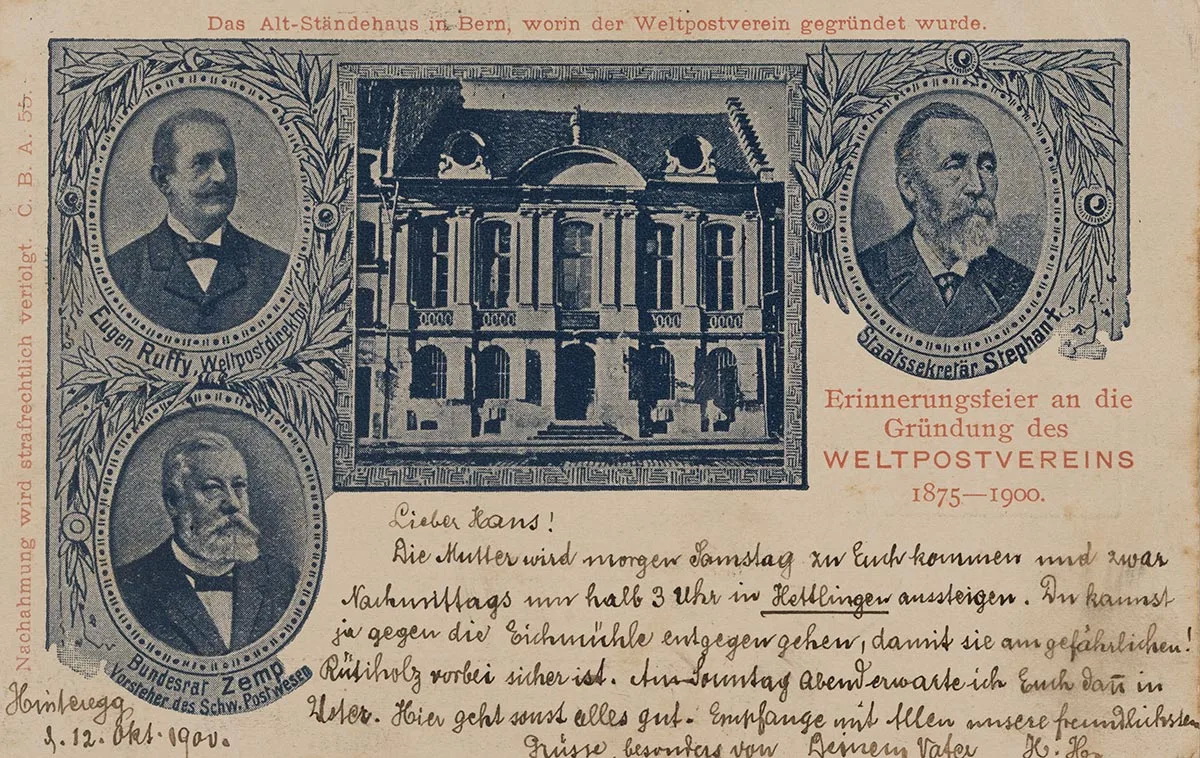 Das Alt-Ständehaus in Bern, worin der Weltpostverein gegründet wurde.
Nachahmung wird strafrechtlich verfolgt. C. B. A. 55.
Eugen Ruffy, Weltpostdirektor
Staatssekretär Stephan †
Bundesrat Zemp
Vorsteher des Schw. Postwesen
Erinnerungsfeier an die
Gründung des
WELTPOSTVEREINS
1875—1900.
Lieber Hans!
Die Mutter wird morgen Samstag zu Euch kommen und zwar
Nachmittags um halb 3 Uhr in Hettlingen aussteigen. Du kannst
ja gegen die Eichmühle entgegen gehen, damit sie am gefährlichen!
Rütiholz vorbei sicher ist. Am Sonntag Abend erwarte ich Euch dañ in
Uster. Hier geht sonst alles gut. Empfange mit Allen unsere freundlichsten
Grüsse, besonders von Deinem Vater H.
Hinteregg
d. 12. Okt. 1900.